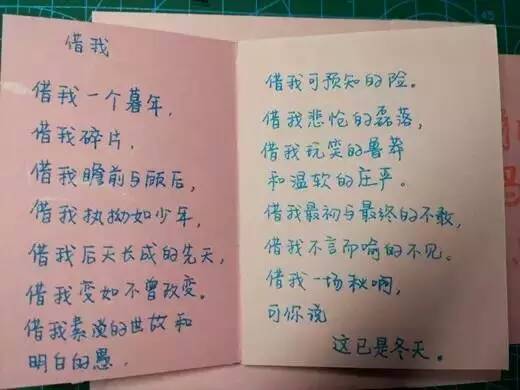 借我
借我一个暮年,
借我碎片,
借我瞻前与顾后,
借我执拗如少年,
借我后天长成的先天,
借我变如不曾改变。
借我素淡的世故和
明白的愚。
借我可预知的险。
借我悲怆的磊落,
借我玩笑的鲁莽
和温软的庄严。
借我最初与最终的不敢,
借我不言而喻的不见。
借我一场秋啊,
可你说
这已是冬天。